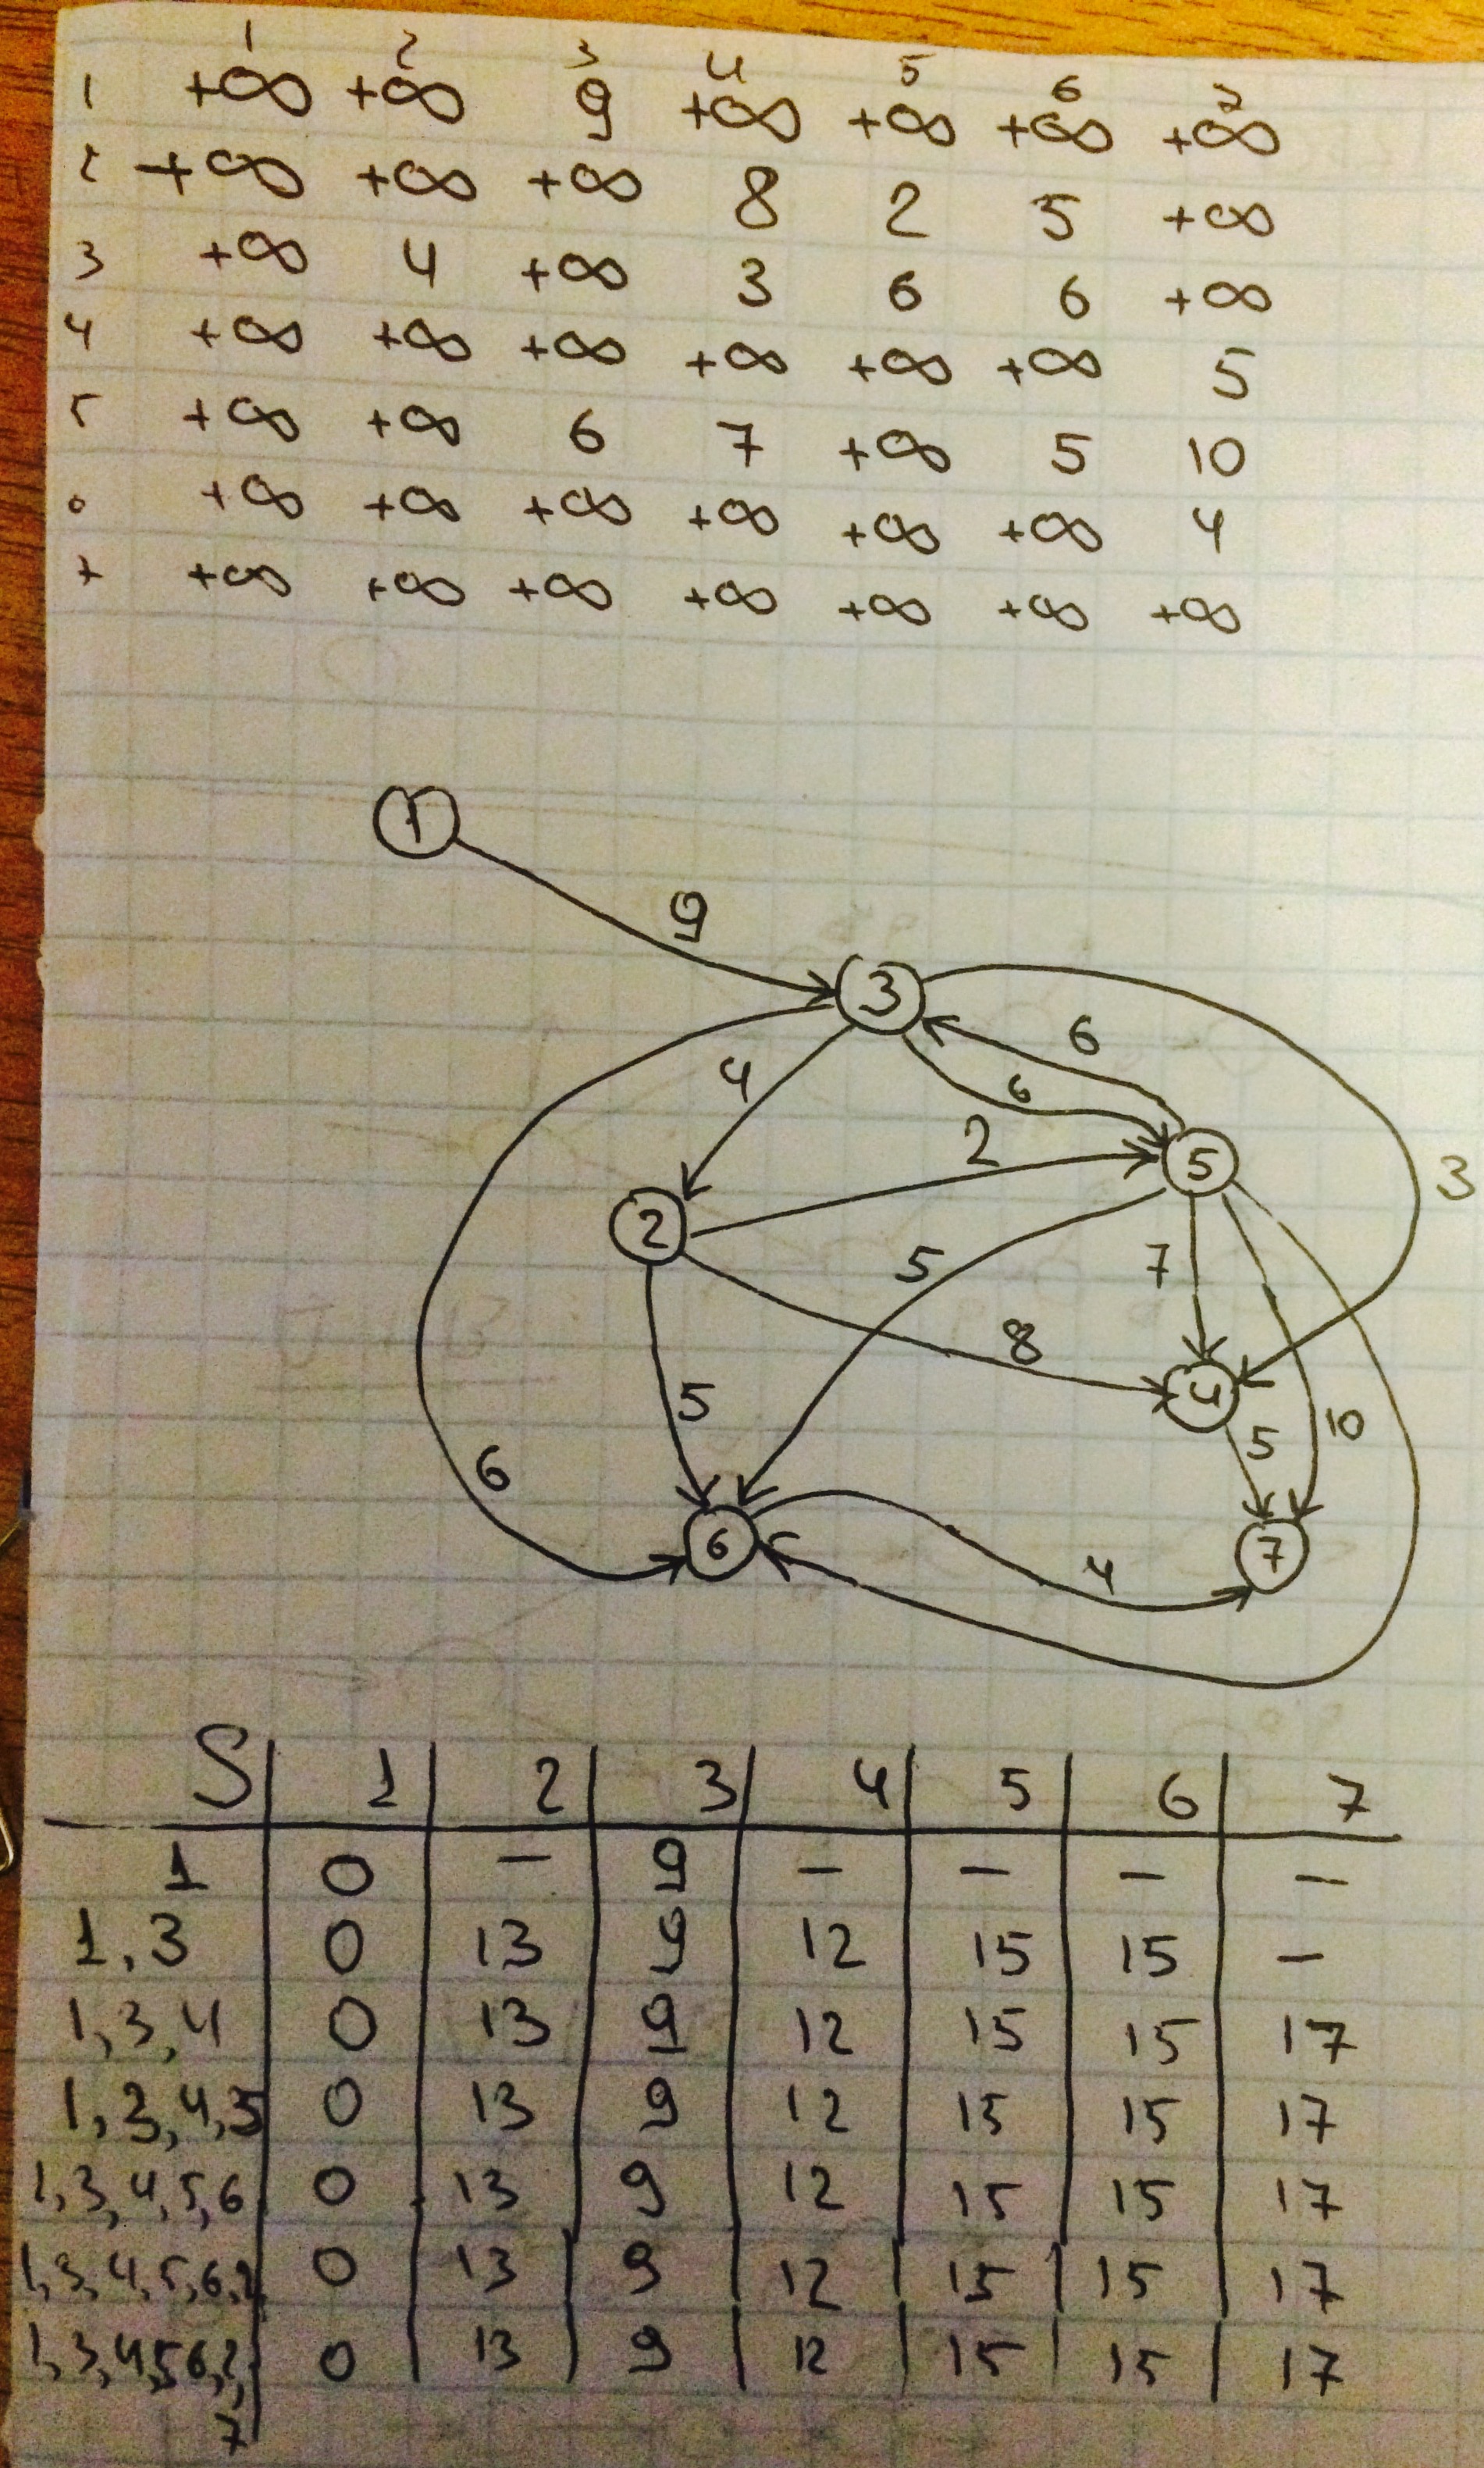 1 2 3 4 5 6 7
1 +∞ +∞ 9 +∞ +∞ +∞ +∞
2 +∞ +∞ +∞ 8 2 5 +∞
3 +∞ 4 +∞ 3 6 6 +∞
4 +∞ +∞ +∞ +∞ +∞ +∞ 5
5 +∞ +∞ 6 7 +∞ 5 10
6 +∞ +∞ +∞ +∞ +∞ +∞ 4
7 +∞ +∞ +∞ +∞ +∞ +∞ +∞
1
9
3
6
4
6
2
5
3
2
5
7
8
4
5
5
10
6
6
4
7
S 1 2 3 4 5 6 7
1 0 – 9 – – – –
1,3 0 13 9 12 15 15 –
1,3,4 0 13 9 12 15 15 17
1,3,4,5 0 13 9 12 15 15 17
1,3,4,5,6 0 13 9 12 15 15 17
1,3,4,5,6,2 0 13 9 12 15 15 17
1,3,4,5,6,2, 0 13 9 12 15 15 17
7